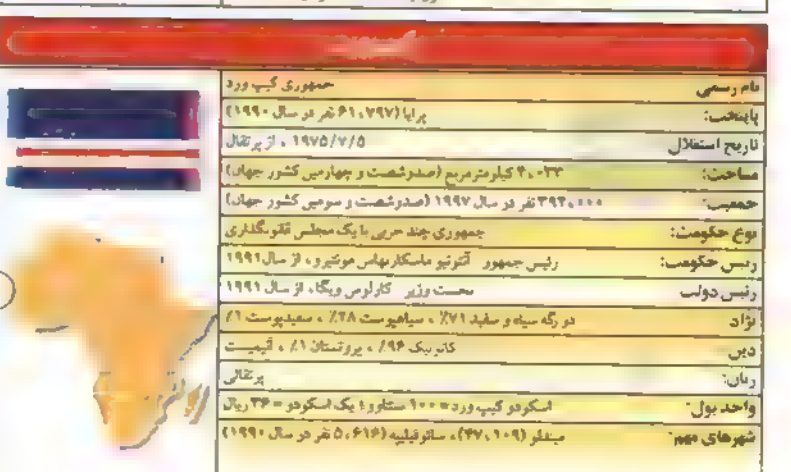 نام رسمی جمهوری کیپ ورد
پایتخت: پرایا (۶۱،۷۹۷ نفر در سال ۱۹۹۰)
تاریخ استقلال ۱۹۷۵/۷/۵ ، از پرتقال
مساحت: ۴،۰۳۳ کیلومترمربع (صدوشصت و چهارمین کشور جهان)
جمعیت: ۳۹۴،۰۰۰ نفر در سال ۱۹۹۷ (صدوشصت و سومین کشور جهان)
نوع حکومت: جمهوری چند حزبی با یک مجلس قانونگذاری
رییس حکومت: رئیس جمهور آنتونیو ماسکارنهاس مونتیرو، از سال ۱۹۹۱
رئیس دولت نخست وزیر کارلوس ویگا، از سال ۱۹۹۱
نژاد دو رگه سیاه و سفید ۷۱٪ ، سیاهپوست ۲۸٪ ، سفیدپوست ۱٪
دین کاتولیک ۹۶٪ ، پروتستان ۱٪ ، آنیمیست
زبان: پرتقالی
واحد پول: اسکودو کیپ ورد=۱۰۰ سنتاوو؛ یک اسکودو = ۳۶ ریال
شهرهای مهم: میندلو (۴۷،۱۰۹)، سائوفیلیپه (۵،۶۱۶ نفر در سال ۱۹۹۰)